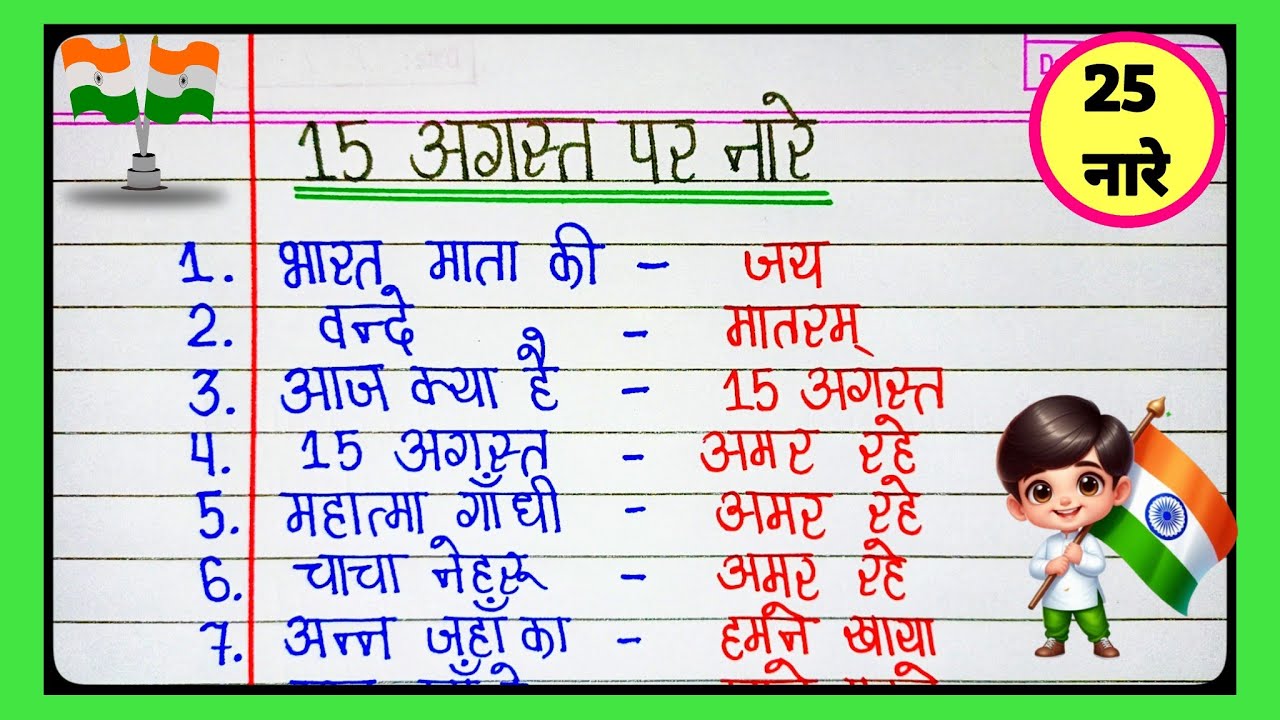 15 अगस्त पर नारे
25
नारे
1. भारत माता की - जय
2. वन्दे - मातरम्
3. आज क्या है - 15 अगस्त
4. 15 अगस्त - अमर रहे
5. महात्मा गाँधी - अमर रहे
6. चाचा नेहरू - अमर रहे
7. अन्न जहाँ का - हमने खाया